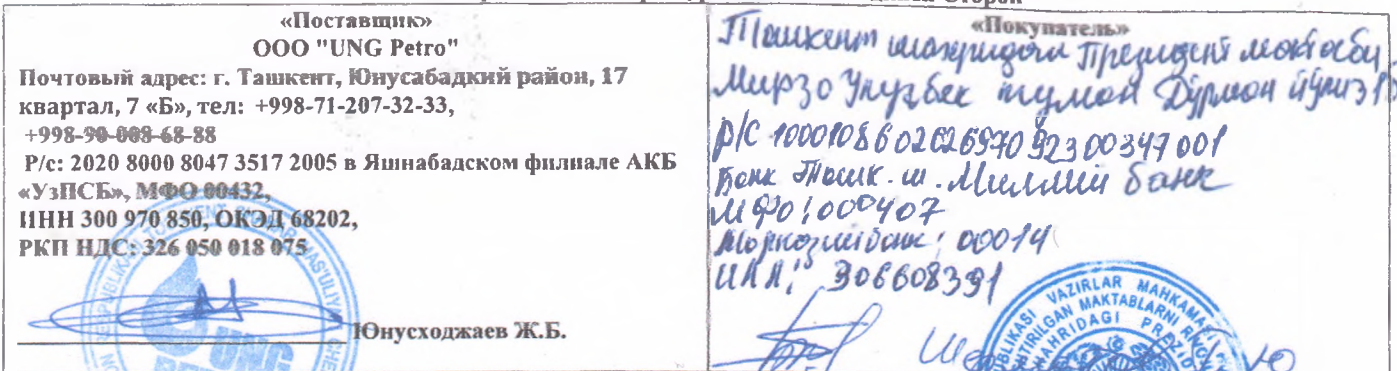 «Поставщик»
ООО "UNG Petro"
Почтовый адрес: г. Ташкент, Юнусабадкий район, 17
квартал, 7 «Б», тел: +998-71-207-32-33,
+998-90-008-68-88
Р/с: 2020 8000 8047 3517 2005 в Яшнабадском филиале АКБ
«УзПСБ», МФО 00432,
ИНН 300 970 850, ОКЭД 68202,
РКП НДС: 326 050 018 075
Юнусходжаев Ж.Б.
UNG
«Покупатель»
Тошкент шахридаги Президент мактаби
Мирзо Улуғбек тумон Дўрмон йўли
р/с
Банк Тошк. ш. Миллий банк
МФО: 000407
Марказий банк: 00014
ИНН: 306608391
VAZIRLAR MAHKAMASI
MAKTABLARNI